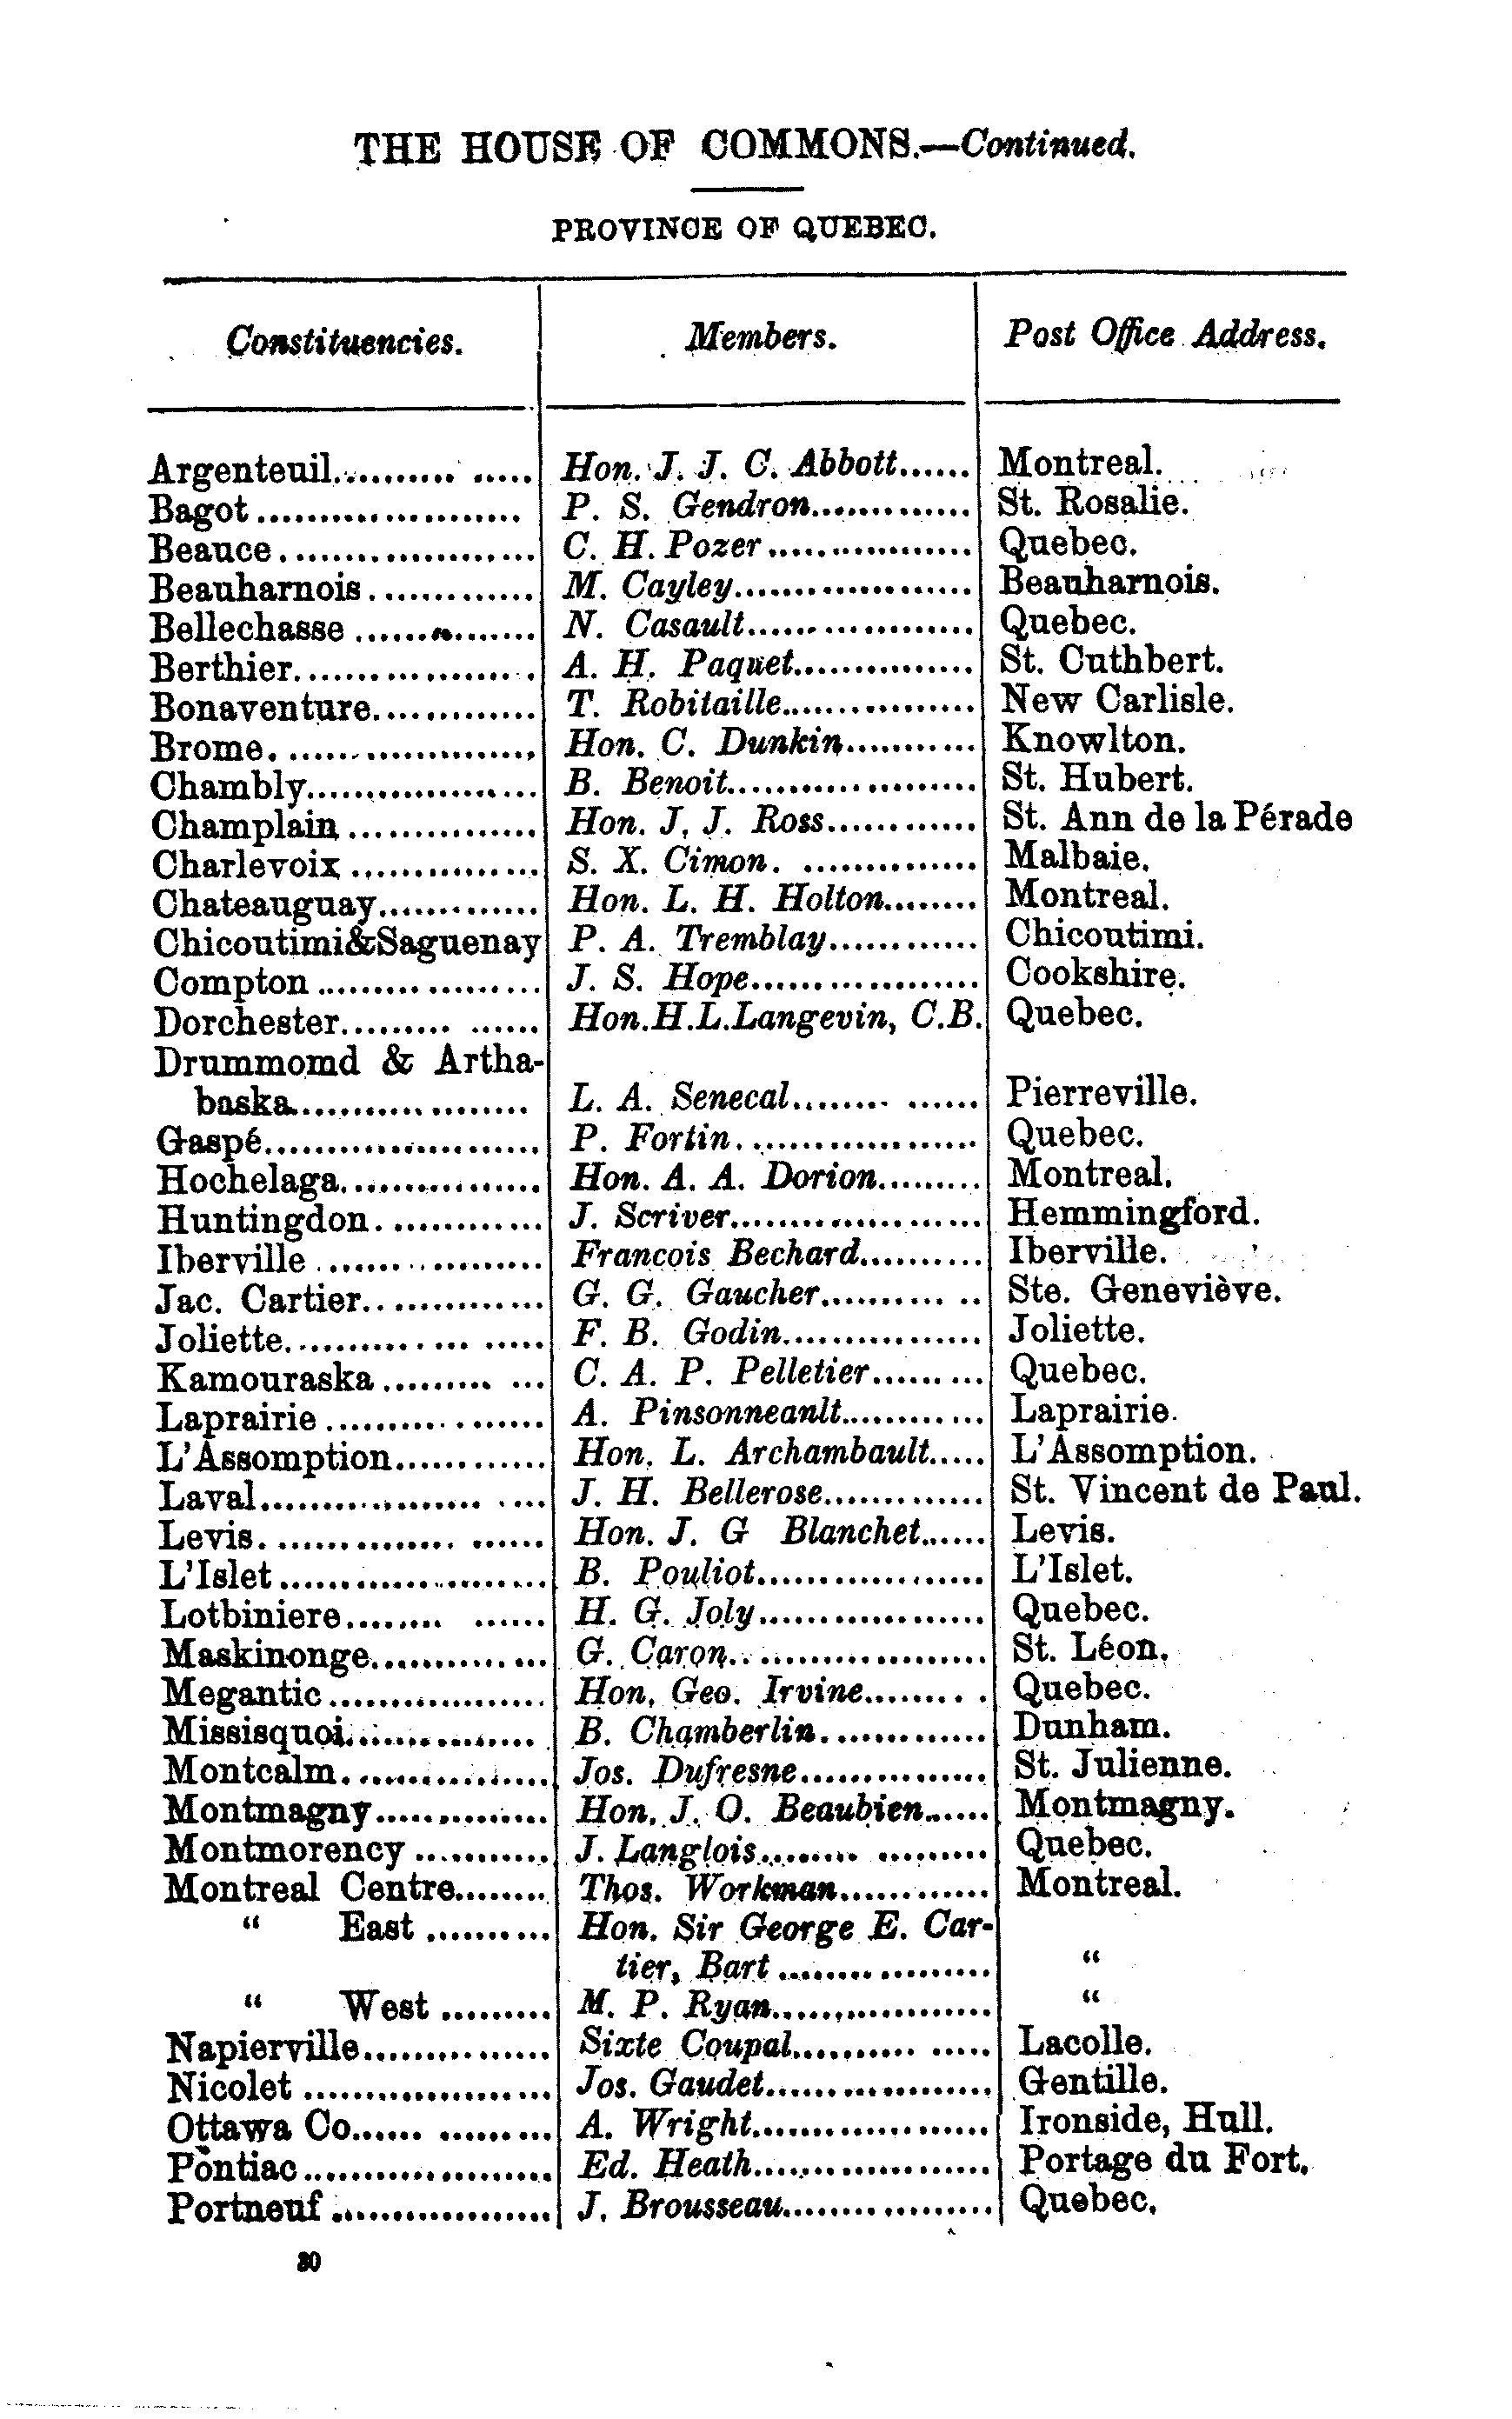 THE HOUSE OF COMMONS.—Continued.
PROVINCE OF QUEBEC.
Constituencies. Members. Post Office Address.
Argenteuil............... Hon. J. J. C. Abbott...... Montreal.
Bagot..................... P. S. Gendron............. St. Rosalie.
Beauce..................... C. H. Pozer................. Quebec.
Beauharnois............. M. Cayley.................... Beauharnois.
Bellechasse............... N. Casault................... Quebec.
Berthier.................... A. H. Paquet............... St. Cuthbert.
Bonaventure............. T. Robitaille................ New Carlisle.
Brome...................... Hon. C. Dunkin........... Knowlton.
Chambly................... B. Benoit..................... St. Hubert.
Champlain............... Hon. J. J. Ross............ St. Ann de la Pérade
Charlevoix............... S. X. Cimon. .............. Malbaie.
Chateauguay............. Hon. L. H. Holton........ Montreal.
Chicoutimi&Saguenay P. A. Tremblay............ Chicoutimi.
Compton.................. J. S. Hope................... Cookshire.
Dorchester......... ...... Hon.H.L.Langevin, C.B. Quebec.
Drummomd & Artha-
baska................... L. A. Senecal........ ...... Pierreville.
Gaspé...................... P. Fortin.................... Quebec.
Hochelaga................ Hon. A. A. Dorion......... Montreal.
Huntingdon............. J. Scriver..................... Hemmingford.
Iberville.................. Francois Bechard.......... Iberville.
Jac. Cartier.............. G. G. Gaucher.......... .. Ste. Geneviève.
Joliette............ ... ..... F. B. Godin................ Joliette.
Kamouraska......... ... C. A. P. Pelletier......... Quebec.
Laprairie................. A. Pinsonneanlt............ Laprairie.
L'Assomption............ Hon. L. Archambault..... L'Assomption.
Laval.................. .... J. H. Bellerose............. St. Vincent de Paul.
Levis............... ...... Hon. J. G Blanchet...... Levis.
L'Islet..................... B. Pouliot................... L'Islet.
Lotbiniere........ ...... H. G. Joly................... Quebec.
Maskinonge............ ... G. Caron.................... St. Léon.
Megantic.................. Hon. Geo. Irvine......... . Quebec.
Missisquoi................ B. Chamberlin............. Dunham.
Montcalm................. Jos. Dufresne............... St. Julienne.
Montmagny.............. Hon. J. O. Beaubien...... Montmagny.
Montmorency........... J. Langlois........ ......... Quebec.
Montreal Centre........ Thos. Workman............. Montreal.
“ East.......... Hon. Sir George E. Car-
tier, Bart.................. “
“ West......... M. P. Ryan.................. “
Napierville............... Sixte Coupal.......... ..... Lacolle.
Nicolet.................... Jos. Gaudet................... Gentille.
Ottawa Co...... ......... A. Wright.................... Ironside, Hull.
Pontiac.................... Ed. Heath.................... Portage du Fort.
Portneuf.................. J. Brousseau................. Quebec.
30